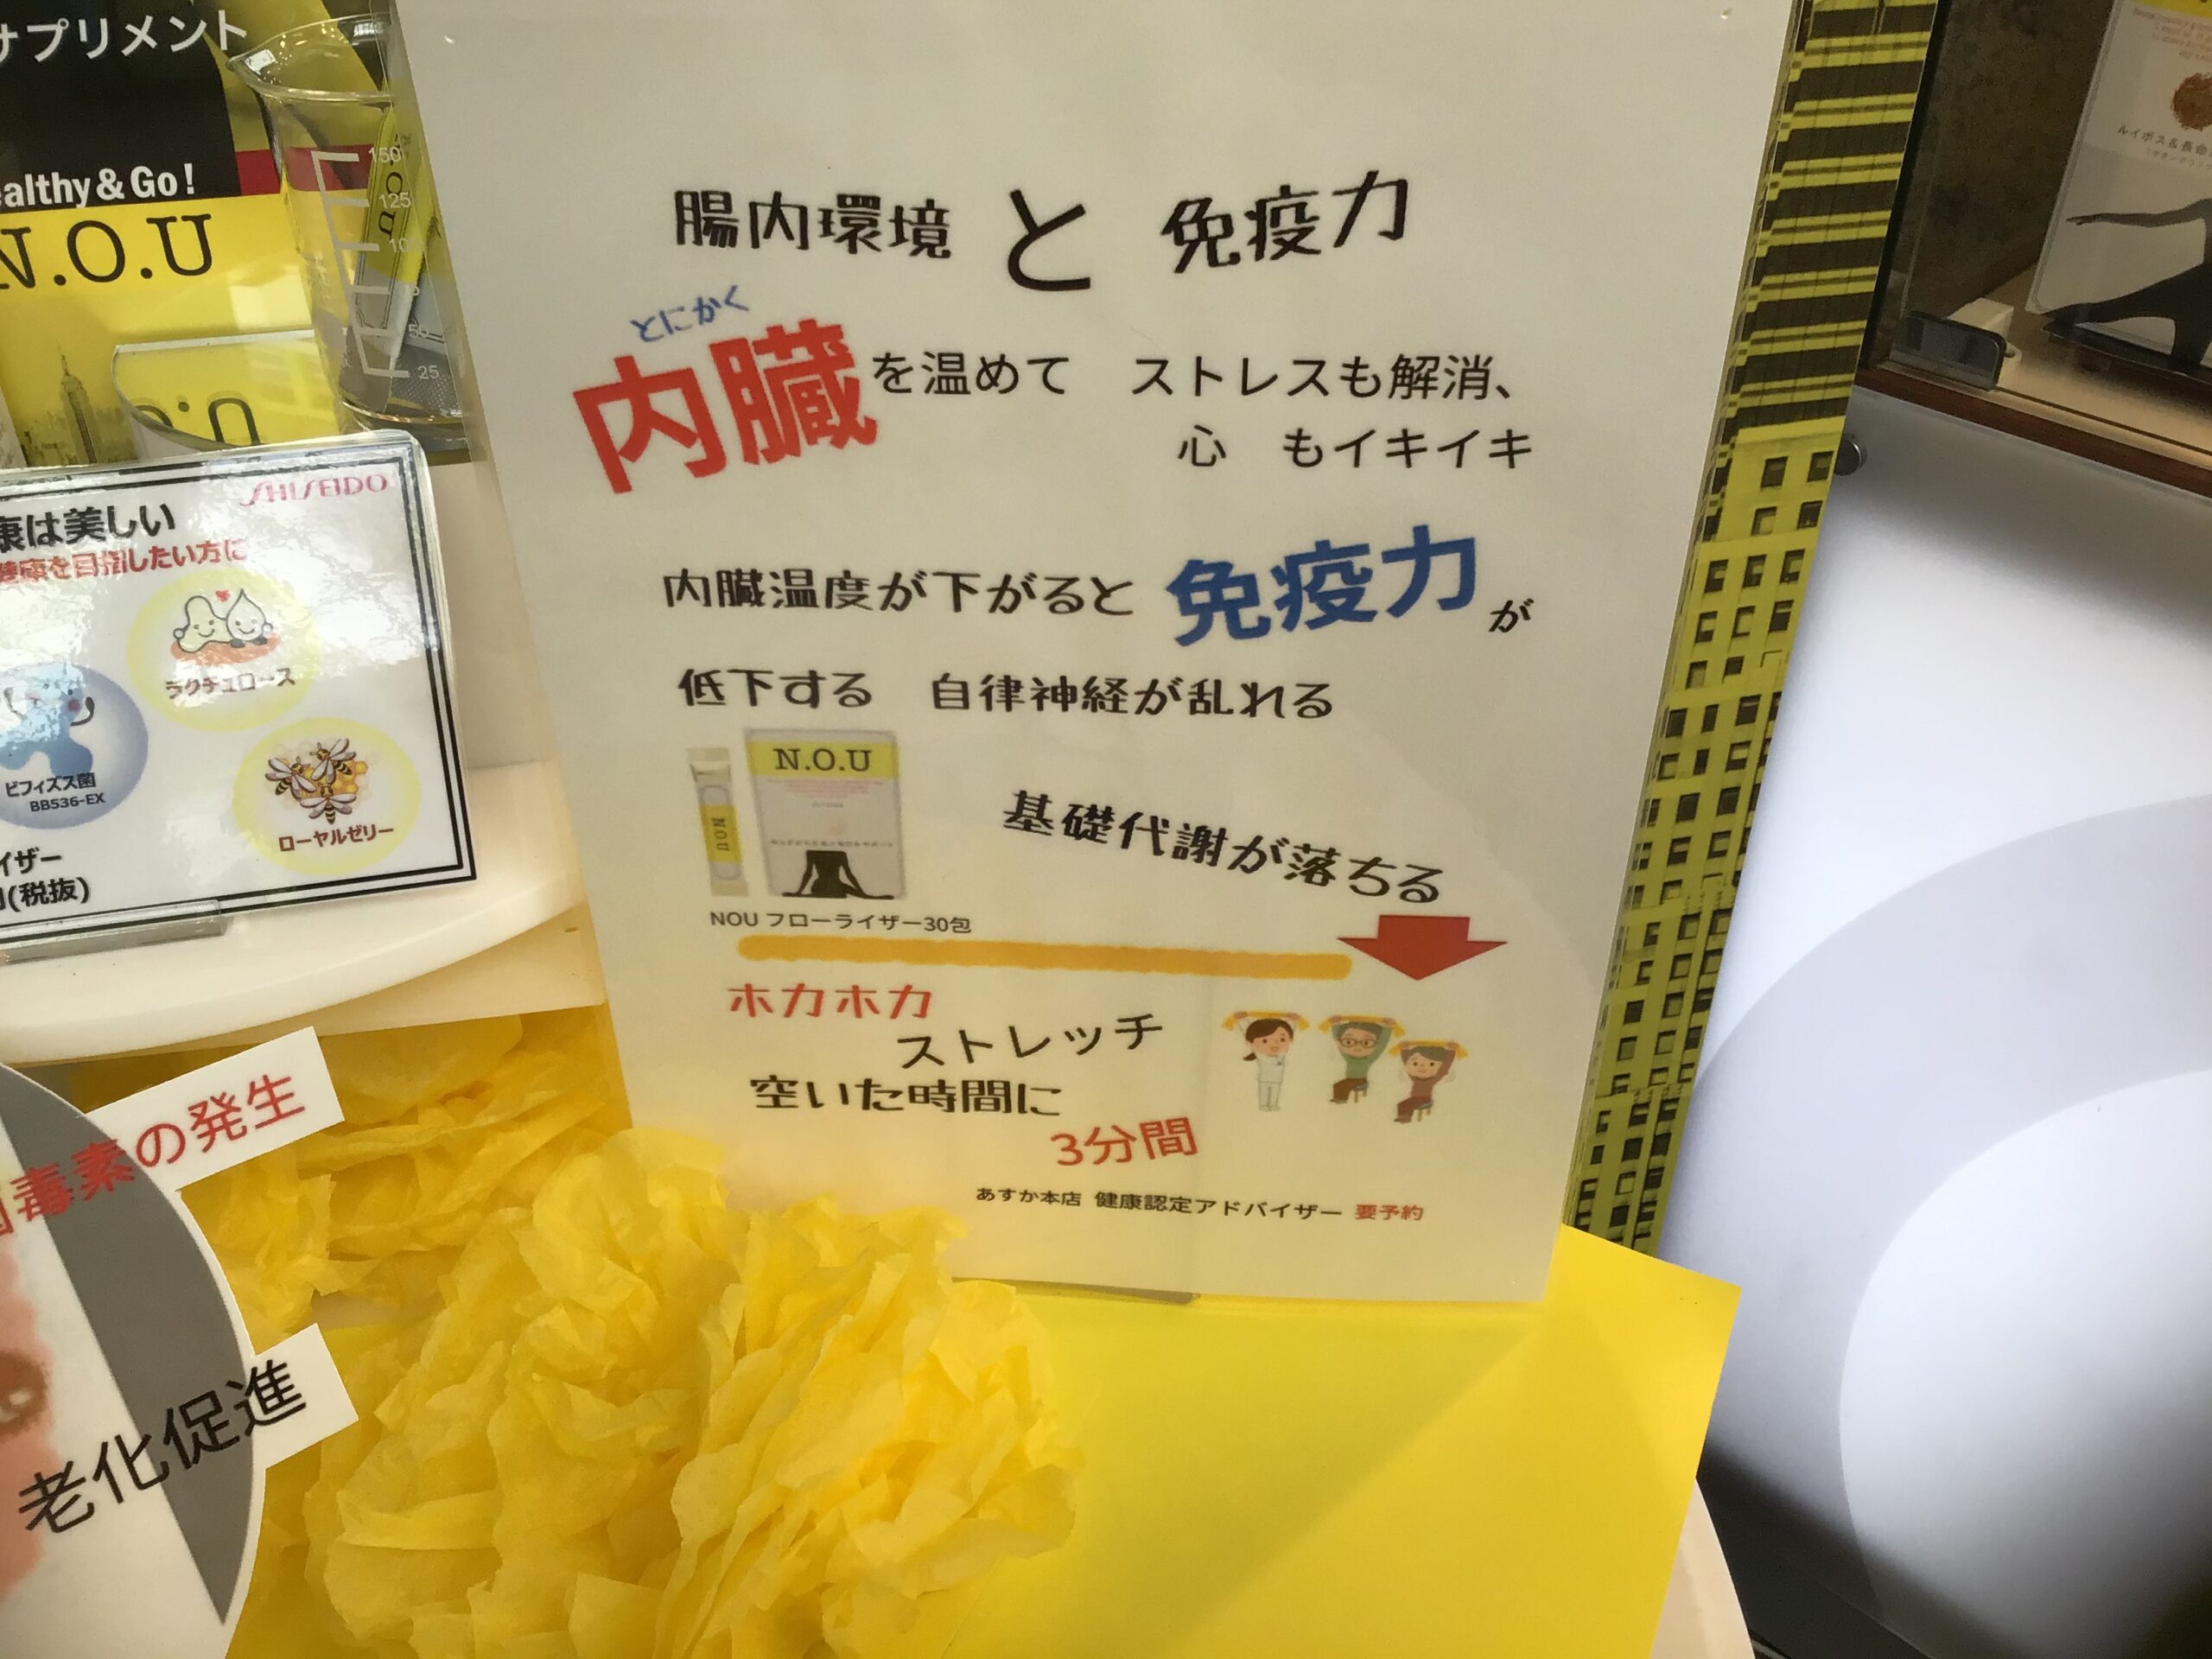 サプリメント
ealthy & Go!
N.O.U
150
125
50
25
SHISEIDO
康は美しい
健康を目指したい方に
ラクチュロース
ビフィズス菌
BB536-EX
ローヤルゼリー
イザー
(税抜)
毒素の発生
老化促進
腸内環境 と 免疫力
とにかく
内臓を温めて ストレスも解消、
心 もイキイキ
内臓温度が下がると 免疫力が
低下する 自律神経が乱れる
N.O.U
NOU
基礎代謝が落ちる
NOU フローライザー30包
ホカホカ
ストレッチ
空いた時間に
3分間
あすか本店 健康認定アドバイザー 要予約
ルイボス&長命